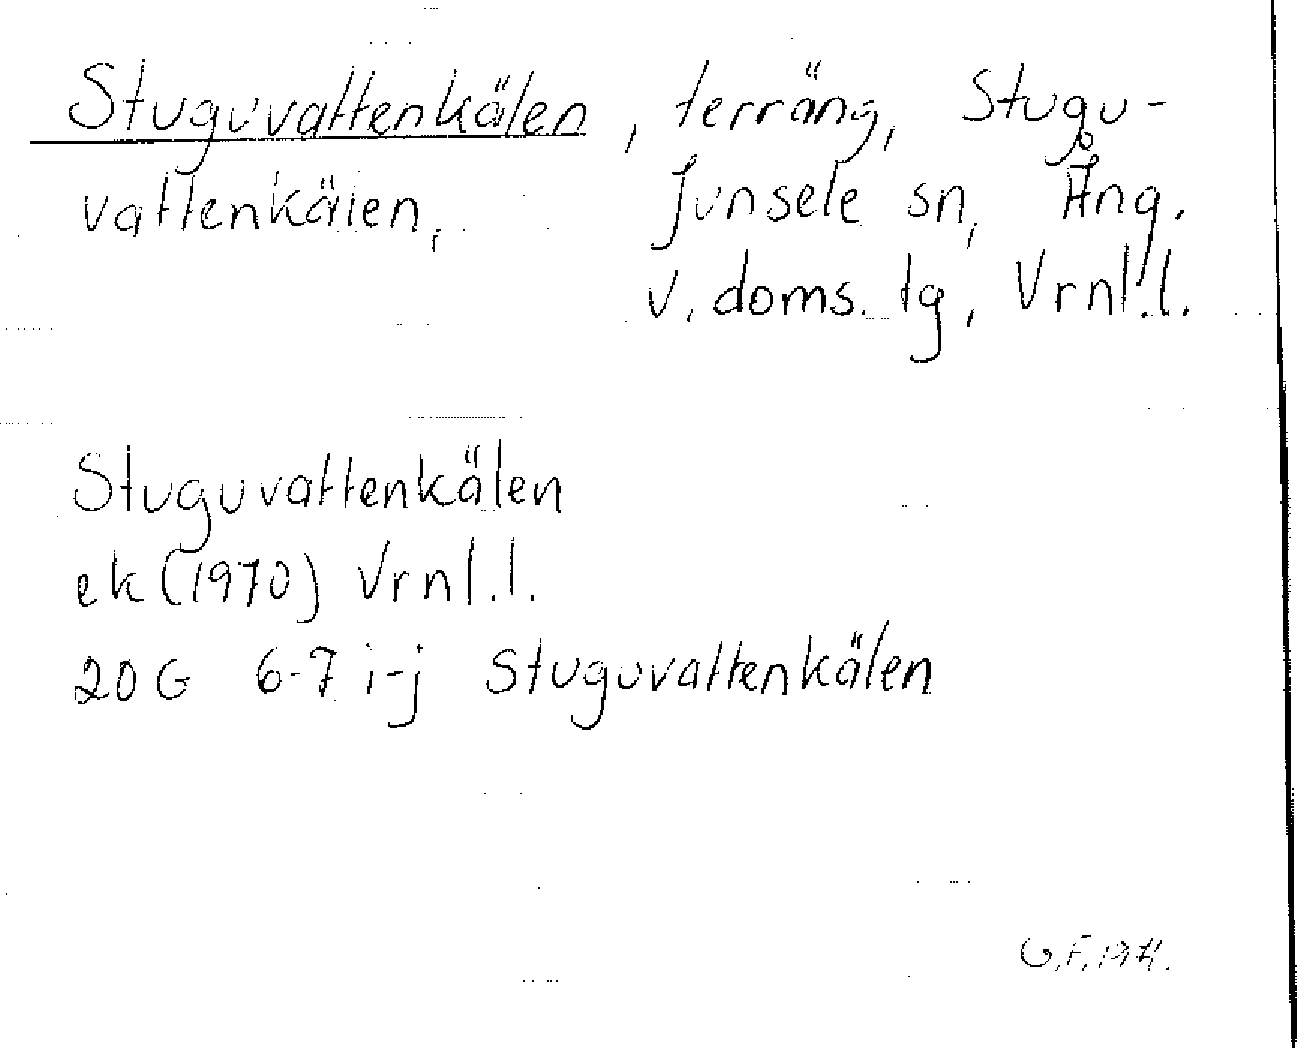 Stuguvattenkälen, terräng, Stugu-
vattenkälen, Junsele sn, Ång.
v. doms. tg, Vrnl.l.
Stuguvattenkälen
ek (1970) Vrnl.l.
20 G 6-7 i-j Stuguvattenkälen
G.F. 1971.